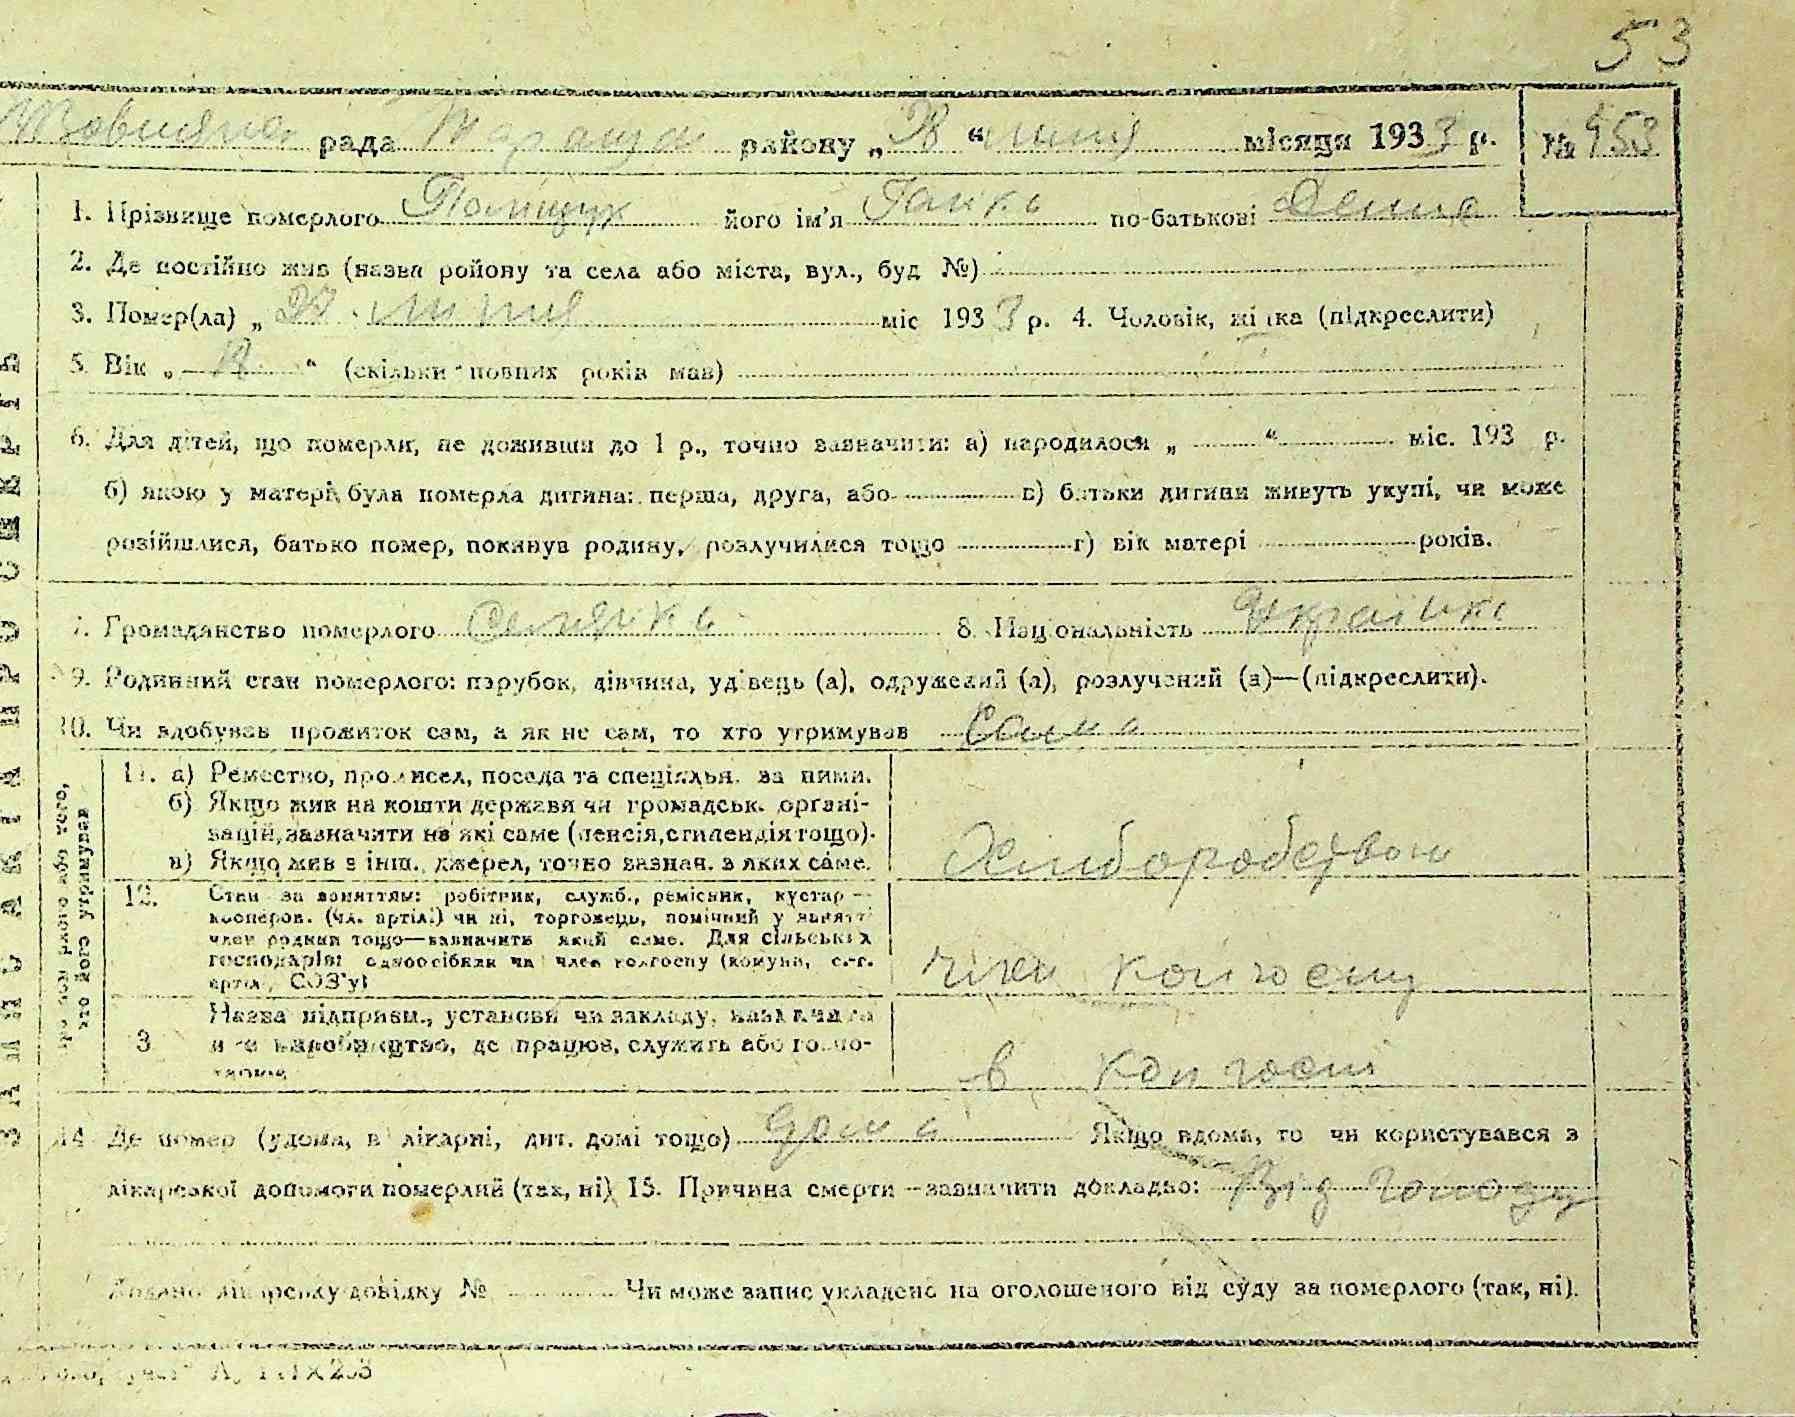 53
рада Тараща району „28“ липня місяця 1933 р. № 953
1. Прізвище померлого Поліщук його ім'я Ганка по-батькові Дения
2. Де постійно жив (назва району та села або міста, вул., буд №)
3. Помер(ла) „ 27 липня міс 1933 р. 4. Чоловік, жінка (підкреслити)
5. Вік „ “ (скільки повних років мав)
6. Для дітей, що померли, не доживши до 1 р., точно зазначити: а) народилося „ “ міс. 193 р.
б) якою у матері була померла дитина: перша, друга, або в) батьки дитини живуть укупі, чи може
розійшлися, батько помер, покинув родину, розлучилися тощо г) вік матері років.
7. Громадянство померлого Селянка 8. Національність Українка
9. Родинний стан померлого: парубок, дівчина, удівець (а), одружений (а), розлучений (а)—(підкреслити).
10. Чи здобував прожиток сам, а як не сам, то хто утримував Сама
11. а) Ремество, промисел, посада та спеціяльн. за ними.
б) Якщо жив на кошти держави чи громадськ. органі-
зацій, зазначити на які саме (пенсія, стипендія тощо).
в) Якщо жив з інш. джерел, точно зазнач. з яких саме.
Хліборобством
12. Стан за заняттям: робітник, служб., ремісник, кустар—
кооперов. (чл. артілі) чи ні, торговець, помічний у занятті
член родини тощо—зазначить який саме. Для сільських
господарів: одноосібник чи член колгоспу (комуна, с.-г.
артіл, СОЗ'у)
член колгоспу
3 Назва підприєм., установи чи закладу, назначити
виробництво, де працює, служить або госпо-
в колгоспі
14 Де помер (удома, в лікарні, дит. домі тощо) дома Якщо вдома, то чи користувався з
лікарської допомоги померлий (так, ні) 15. Причина смерти—зазначити докладно: Від голоду
Додано лікарську довідку № Чи може запис укладено на оголошеного від суду за померлого (так, ні).